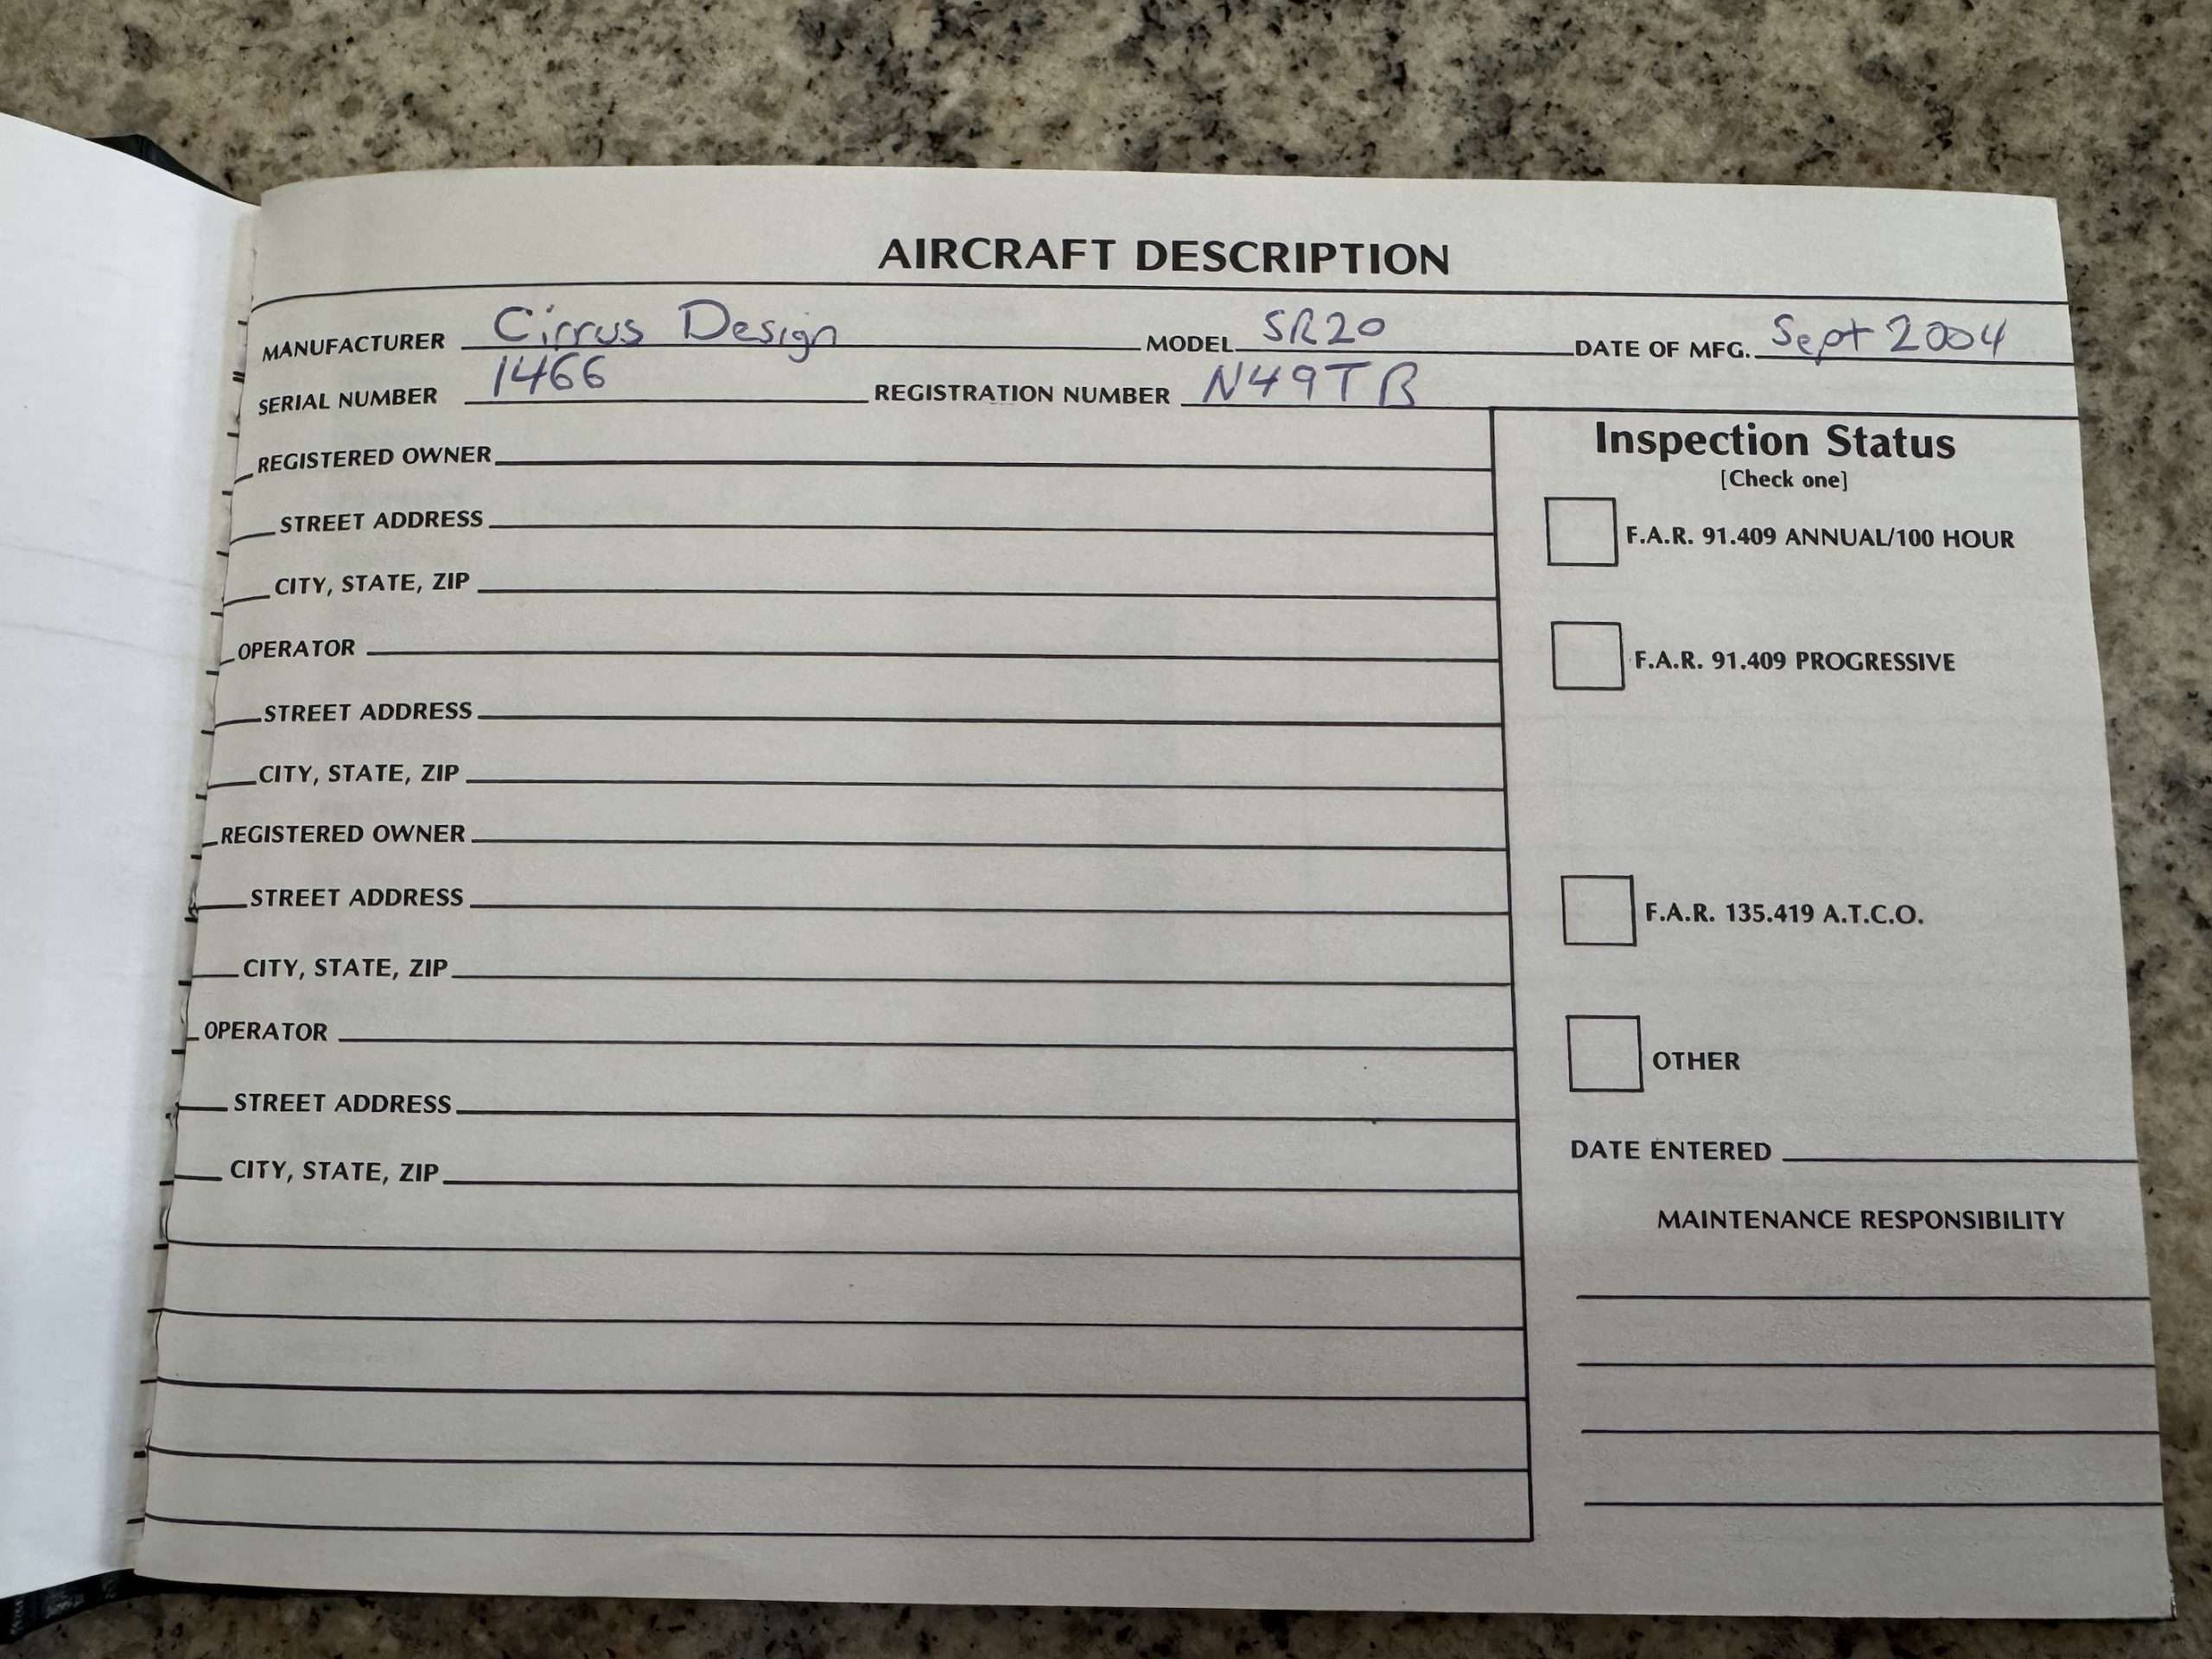 AIRCRAFT DESCRIPTION
MANUFACTURER Cirrus Design MODEL SR20 DATE OF MFG. Sept 2004
SERIAL NUMBER 1466 REGISTRATION NUMBER N49TB
REGISTERED OWNER
STREET ADDRESS
CITY, STATE, ZIP
OPERATOR
STREET ADDRESS
CITY, STATE, ZIP
REGISTERED OWNER
STREET ADDRESS
CITY, STATE, ZIP
OPERATOR
STREET ADDRESS
CITY, STATE, ZIP
Inspection Status
[Check one]
F.A.R. 91.409 ANNUAL/100 HOUR
F.A.R. 91.409 PROGRESSIVE
F.A.R. 135.419 A.T.C.O.
OTHER
DATE ENTERED
MAINTENANCE RESPONSIBILITY